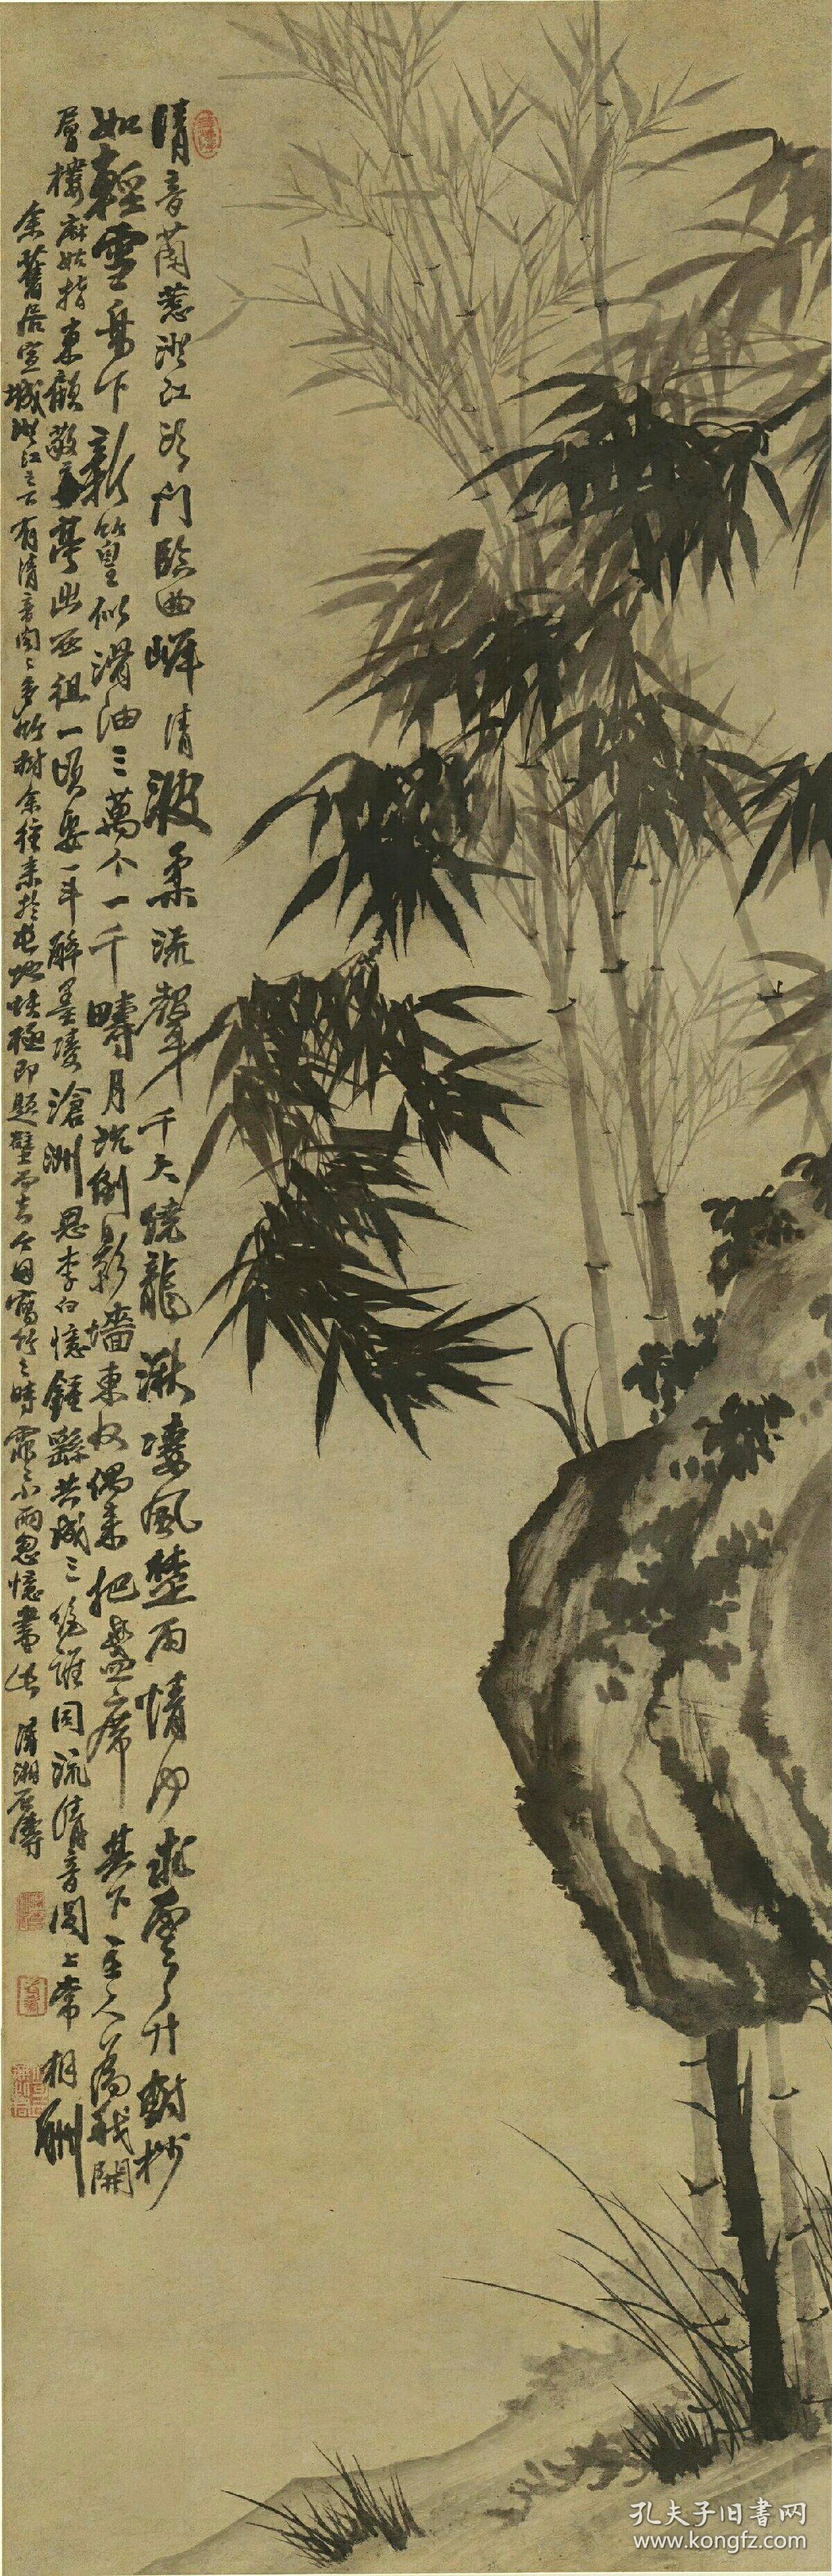 清音閣憙淤江頭門臨曲㟁清波柔流聲千尺繞龍湫淒風楚雨情何求壓以廿對杪
如輕雲舟下新篁似滑油三萬个一千疇月坑倒影墻東收偶来把盞席其下主人為我開
層樓麻姑指東顧敬亭出西祖一頃要一斗醉墨凌滄洲思李白憶鍾繇共成三絕誰同流清音閣上常相酬
余舊居宣城淤江之下有清音閣上多竹樹余往来於其地快極即題壁而去今日寫竹之時霏霏小雨忽憶書此 清湘石濤
孔夫子旧書网
www.kongfz.com